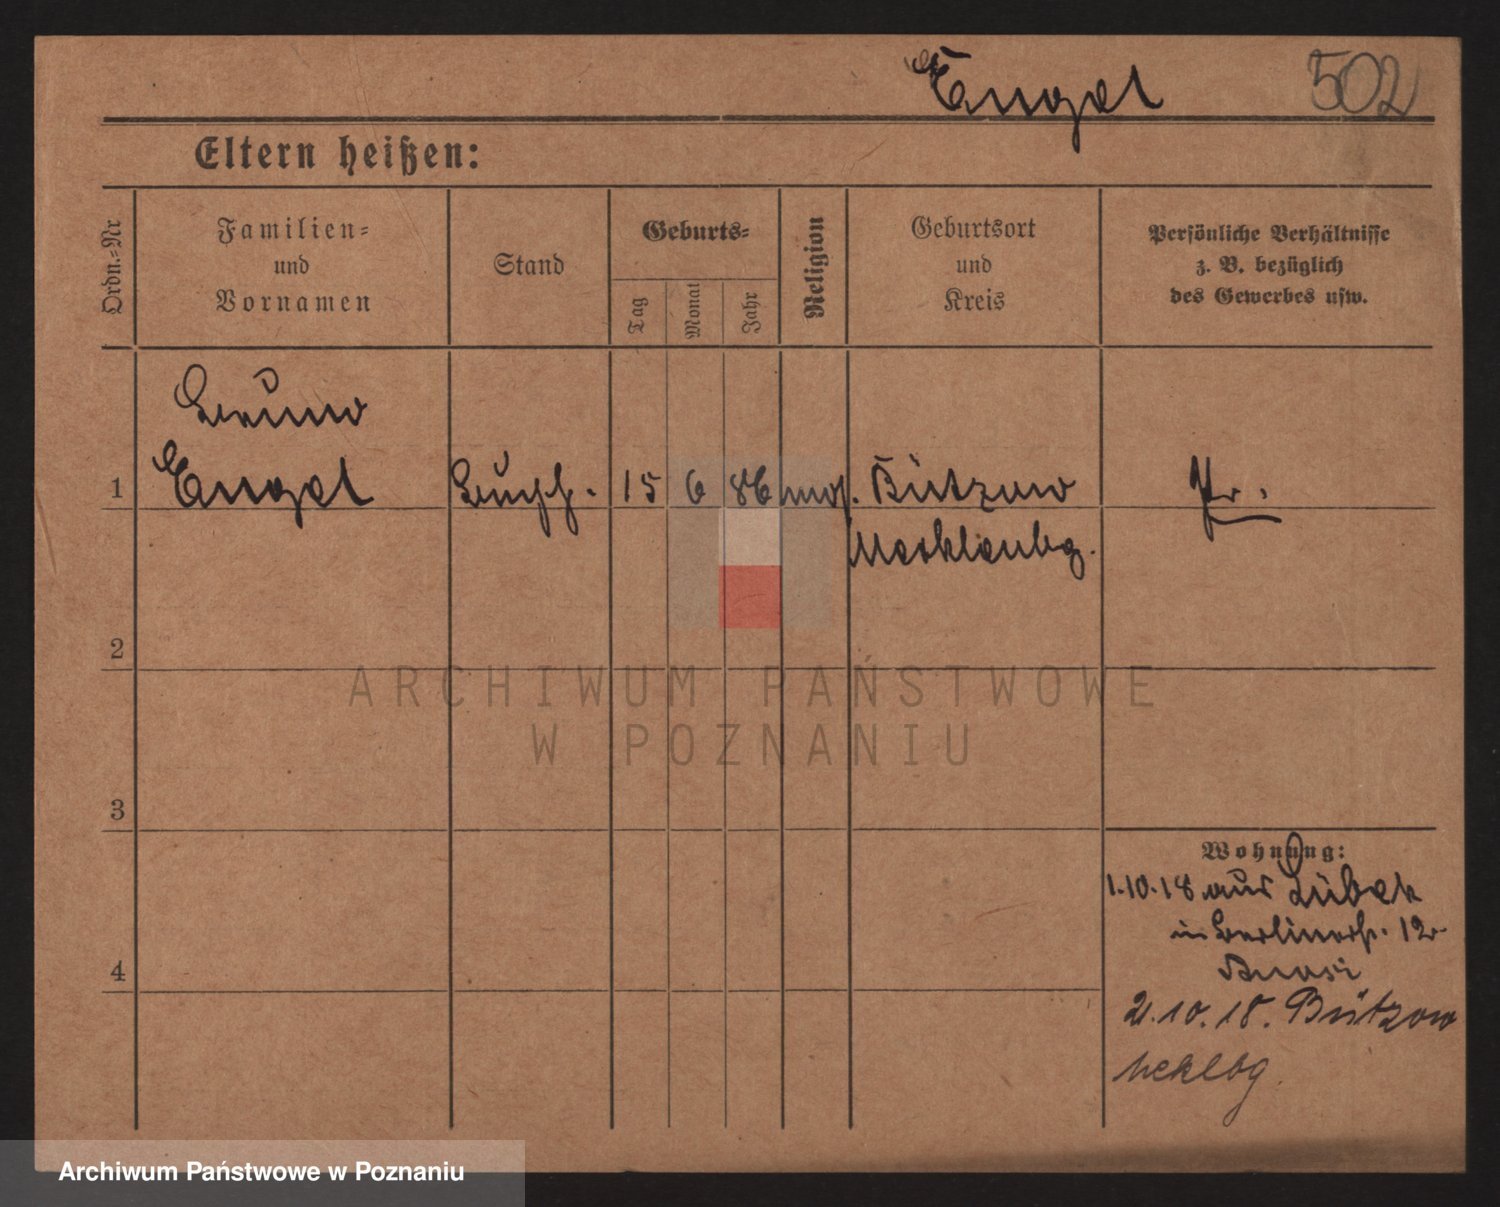 Engel 502
Eltern heißen:
Ordn.-Nr
Familien-
und
Vornamen
Stand
Geburts-
Tag
Monat
Jahr
Religion
Geburtsort
und
Kreis
Persönliche Verhältnisse
z. B. bezüglich
des Gewerbes usw.
Bruno
1 Engel Buchh. 15 6 86 mos. Bützow Pr.
Mecklenbg.
2
3
4
Wohnung:
1.10.18 aus Lübek
in Berlinerstr. 12
21.10.18. Bützow
Meklbg.
ARCHIWUM PAŃSTWOWE
W POZNANIU
Archiwum Państwowe w Poznaniu